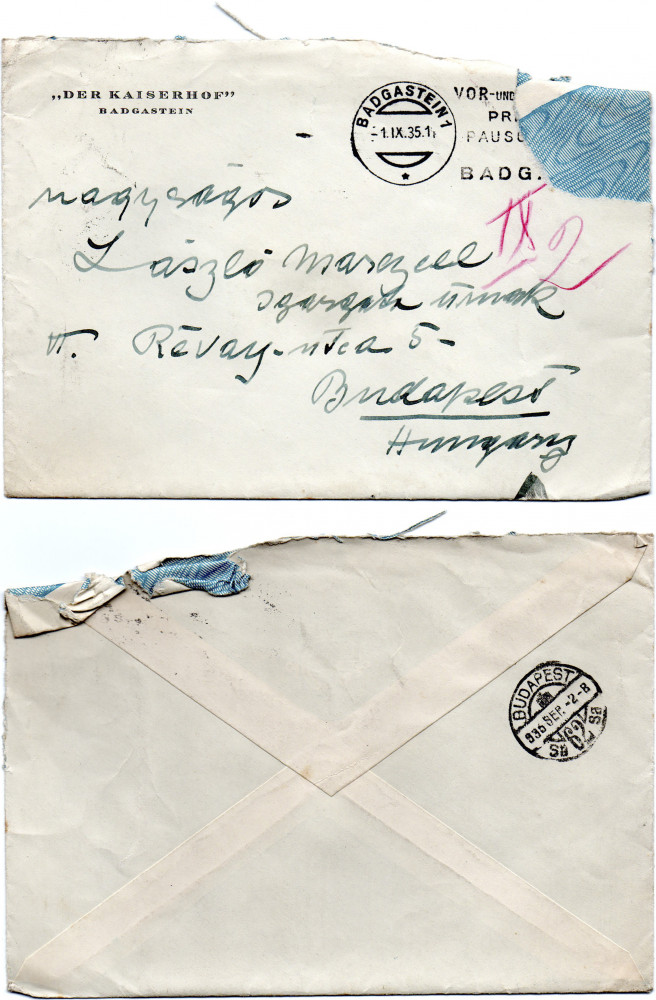 „DER KAISERHOF”
BADGASTEIN
BADGASTEIN 1
-1.IX.35.1
VOR-UND
PR
PAUSC
BADG.
nagyságos
László Marczell
igazgató úrnak
VI. Révay-utca 5-
Budapest
Hungary
IX 2
BUDAPEST
935 SEP. -2.-8
62